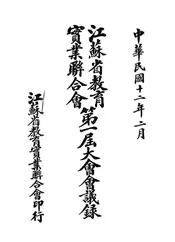 中華民國十二年二月
江蘇省教育實業聯合會第一屆大會會議錄
江蘇省教育實業聯合會印行